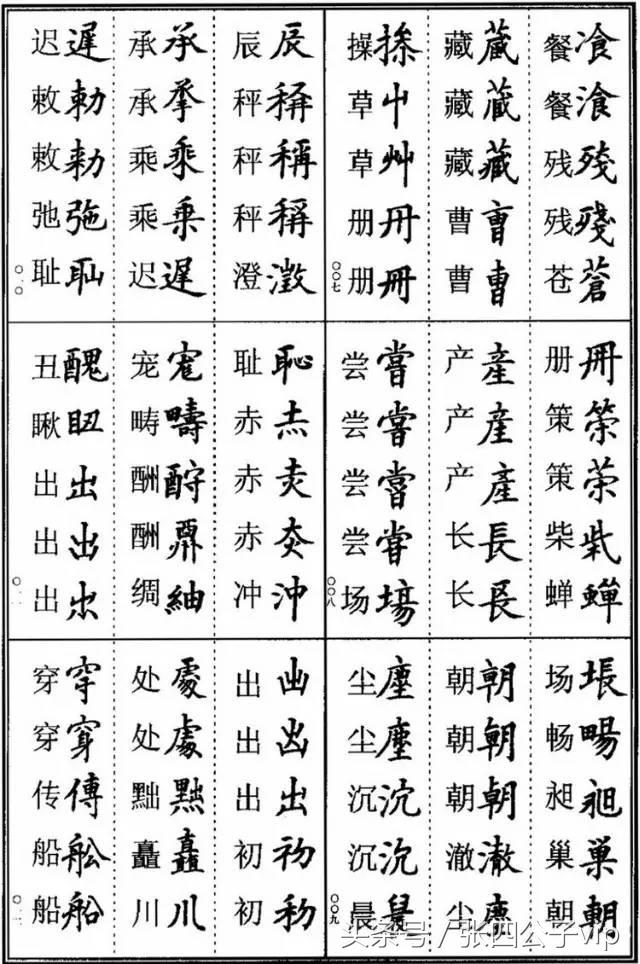 餐飡
餐湌
残殘
残殘
苍蒼
藏蔵
藏蔵
藏藏
曹曺
曹曹
操
草屮
草艸
册冊
册冊
〇〇七
册冊
策筞
策
柴
蝉蟬
产產
产產
产產
长長
长長
尝嘗
尝嘗
尝嘗
尝甞
场塲
〇〇八
场
畅暢
昶昶
巢巢
朝朝
朝朝
朝朝
朝朝
澈澈
尘
尘塵
尘塵
沉沉
沉沉
晨
〇〇九
辰辰
秤稱
秤稱
秤稱
澄澂
承承
承
乘乘
乘乗
迟遲
迟遲
敕勅
敕勑
弛
耻耻
〇一〇
耻恥
赤
赤
赤
冲沖
宠
畴疇
酬酧
酬
绸紬
丑醜
瞅
出出
出出
出
出
出
出出
初初
初
处處
处處
黜
矗矗
川川
穿穿
穿穿
传傳
船舩
船船
头条号/张四公子vip